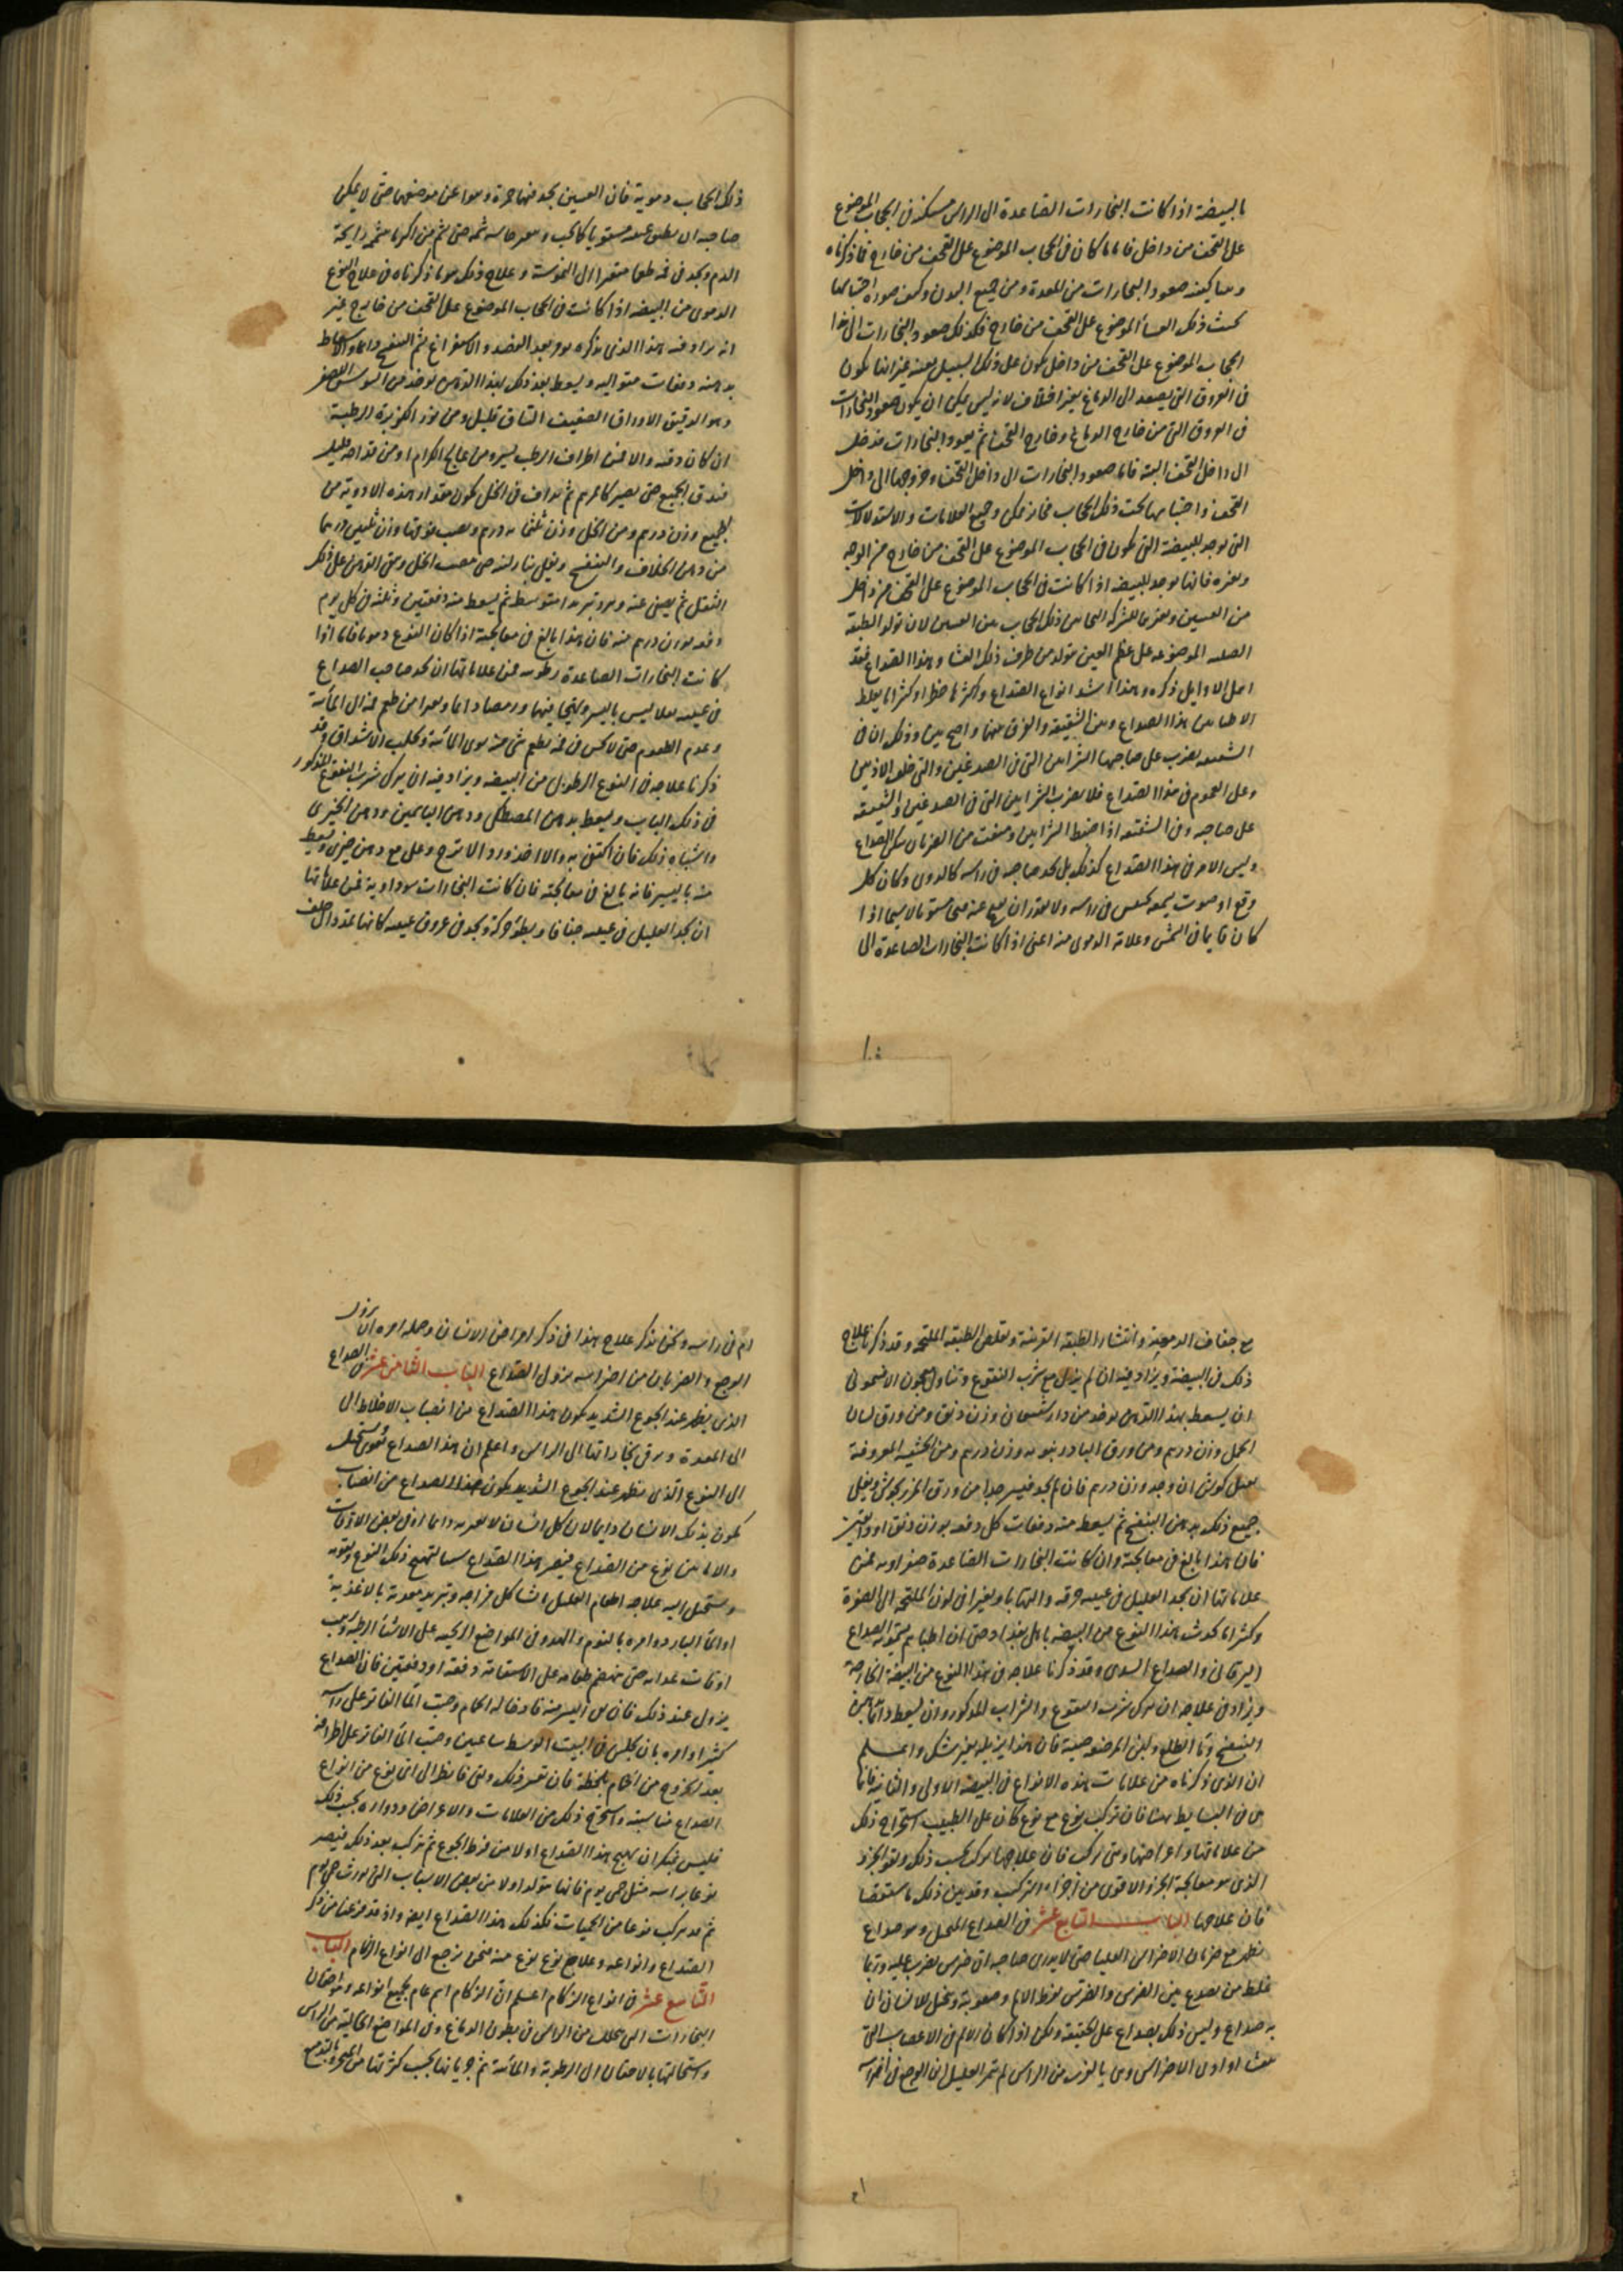 بالبيضة اذا كانت البخارات الصاعدة الى الراس مسكنه فى الحجاب الموضوع
على القحف من داخل فاما ما كان فى الحجاب الموضوع على القحف من خارج فاذكرناه
كيفيه صعود البخارات من المعدة ومن جميع البدن وكيف صورة احتباسها
تحت ذلك الغشأ الموضوع على القحف من خارج فكذلك صعود البخارات الى هذا
الحجاب الموضوع على القحف من داخل يكون على ذلك السبيل بعينه غير انها يكون
فى العروق التى يصعد الى الدماغ بغير اختلاف لانه ليس يمكن ان يكون صعود البخارات
فى العروق التى من خارج الدماغ وخارج القحف ثم يعود البخارات فتدخل
الى داخل القحف البتة فاما صعود البخارات الى داخل القحف وخروجها الى داخل
القحف واحتباسها تحت ذلك الحجاب فجائز ممكن وجميع العلامات والاستدلالات
التى توجد للبيضة التى يكون فى الحجاب الموضوع على القحف من خارج من الوجه
وغيره فانها يوجد للبيضه اذا كانت فى الحجاب الموضوع على القحف من داخل
من العينين وغيرها للشركه التى بين ذلك الحجاب بين العينين لان تولد الطبقة
الصلبه الموضوعه على عظم العين متولد من طرف ذلك الغشا وهذا الصداع فقد
اهمل الاوايل ذكره وهذا اشد انواع الصداع واكثرها خطرا وكثيرا ما يغلط
الاطبا بين هذا الصداع وبين الشقيقة والفرق بينهما واضح بين وذلك ان فى
الشقيقه يضرب على صاحبها الشرايين التى فى الصدغين والتى خلف الاذنين
وعلى العموم فى هذا الصداع فلا يضرب الشرايين التى فى الصدغين والشقيقة
على صاحبه وفى الشقيقه اذا ضبط الشرايين ومنعت من الضربان سكن الصداع
وليس الامر فى هذا الصداع كذلك بل يجد صاحبه فى راسه كالدوى وكان كل
وقع او صوت يسمعه يحس فى راسه ولا يقدر ان يفتح عينه فتحا مستويا لا سيما اذا
كان قايما فى الشمس وعلامة الدموى منه اعنى اذا كانت البخارات الصاعدة الى
ذلك الحجاب دموية فان العينين يجد فيها حمرة ونتوا عن موضعهما حتى لا يمكن
صاحبه ان يطبق عينه مستويا كما يجب حتى يشم من اكثر ما يشمه رايحة
الدم ويجد فى فمه طعما متغيرا الى العفونة وعلاج ذلك هو ما ذكرناه فى علاج النوع
الدموى من البيضه اذا كانت فى الحجاب الموضوع على القحف من خارج غير
انه يزاد فيه هذا الذى نذكره وهو بعد الفصد والاستفراغ شم البنفسج دايما والاسعاط
بدهنه دفعات متواليه ويسعط بعد ذلك بهذا الدهن يوخذ من السوسن الاصغر
وهو الدقيق الاوراق الضعيف الساق قليل ومن بزر الكزبرة الرطبة
ان كان وقته والا فمن اطراف الرطب يسير ومن عاليج الكرم او من قداحه قليل
فيدق الجميع حتى يصير كالمرهم ثم يداف فى الخل يكون مقدار هذه الادوية من
الجميع وزن درهم ومن الخل وزن ثلثمايه درهم ويصب فوقها وزن ثلثين درهما
من دهن الخلاف والبنفسج ويغلى بنار لينه حتى ينضب الخل ويبقى الدهن على ذلك
الثفل ثم يصفى عنه ويبرد تبريدا متوسطا ثم يسعط منه دفعتين وثلثه فى كل يوم
دفعه بوزن درهم منه فان هذا بالغ فى معالجة اذا كان النوع دمويا فاما اذا
كانت البخارات الصاعدة رطوبيه فمن علاماتها ان يجد صاحب الصداع
فى عينيه ثقلا ليس باليسير وتهيجا فيهما ورمصا دايما وتغيرا من طعم فمه الى المأية
وعدم الطعوم حتى لا يحس فى فمه بطعم شى منه سوى المائية وتحلب الاشداق وقد
ذكرنا علاجه فى النوع الرطوبى من البيضه ويزاد فيه ان يترك شرب النقوع المذكور
فى ذلك الباب ويسعط بدهن المصطكى ودهن الياسمين ودهن الخيرى
واشباه ذلك فان اكتفى به والا اخذ ورد الاترج وغلى مع دهن خيرى ويسعط
منه باليسير فانه بالغ فى معالجته فان كانت البخارات سوداوية فمن علاماتها
ان يجد العليل فى عينيه جفافا وبطؤ حركة ويجد فى عروق عينيه كانها تمتد داخل خلف
مع جفاف الدمعية وانتشار الطبقة القرنية وتقلص الطبقه الملتحمه وقد ذكرنا علاج
ذلك فى البيضة ويزاد فيه ان لم يزل مع شرب النقوع وتناول معجون الافتيمونى
ان يسعط بهذا الدهن يوخذ من دارشيشعان وزن دنق ومن ورق لسان
الحمل وزن درهم ومن ورق البادرنبويه وزن درهم ومن الحشيشه المعروفة
ان وجد وزن درهم فان لم يجد فيسير جدا من ورق المرزنجوش ويغلى
جميع ذلك بدهن البنفسج ثم يسعط منه دفعات كل دفعه بوزن دنق او دانقين
فان هذا بالغ فى معالجته وان كانت البخارات الصاعدة صفراويه فمن
علاماتها ان يجد العليل فى عينيه حرقة والتهابا وتغيرا فى لون الملتحمه الى الصفرة
وكثيرا ما يحدث هذا النوع من البيضه باهل بغداد حتى ان اطباهم يسمونه الصداع
اليرقانى والصداع السدى وقد ذكرنا علاجه فى هذا النوع من البيضة الخارجة
ويزاد فى علاجه ان يترك شرب النقوع والشراب المذكور وان يسعط دايما بدهن
البنفسج وما الطلع ولبن المرضعه صبية فان هذا يزيله بغير شك واعلم
ان الذى ذكرناه من علامات هذه الانواع فى البيضة الاولى والثانيه فانها
هى فى البسايط منها فان تركب نوع مع نوع كان على الطبيب استخراج ذلك
من علاماتها واعراضها ومتى تركبت فان علاجها يركب بحسب ذلك ولقوة الجزء
الذى هو معالجة الجزء الاقوى من اجزاء التركيب وقد بين ذلك باستقصا
فان علاجها الباب السابع عشر فى الصداع المنحل وهو صداع
يظهر مع ضربان الاضراس العليا حتى لا يدرى صاحبه اى ضرس يضرب عليه وربما
غلط من يصدع بين الضرس والضرس لفرط الالم وصعوبة ويخيل للانسان ان
به صداع وليس ذلك بصداع على الحقيقة ولكن اذا كان الالم فى الاعصاب التى
اوادى الاضراس وهى بالقرب من الراس لم يتميز العليل اين الوجع فى اضراسه
ام فى راسه ونحن نذكر علاج هذا فى ذكر امراض الاسنان وجملة امره ان يزول
الوجع والضربان من اضراسه يزول الصداع الباب الثامن عشر فى الصداع
الذى يظهر عند الجوع الشديد يكون هذا الصداع من انصباب الاخلاط الى
الى المعدة وترقى بخاراتها الى الراس واعلم ان هذا الصداع متى يستحيل
الى النوع الذى يظهر عند الجوع الشديد يكون هذا الصداع من انصباب
يكون بذلك الانسان دايما لان كل انسان لا يعرى دايما او فى بعض الاوقات
والامان من نوع من الصداع فيصير هذا الصداع سببا لتهيج ذلك النوع وتقويه
ويستحيل اليه علاجه اطعام العليل ما شاكل مزاجه وتبريد معدته بالاغذية
او المآ البارد وامره بالنوم والهدو فى المواضع الريحيه على الاشيا الرطبه ويرتب
اوقات غدايه حتى ينهضم طعامه على الاستقامة دفعه او دفعتين فان الصداع
يزول عند ذلك فان بقى اليسير منه فادخاله الحمام وصب المآ الفاتر على راسه
كثيرا وامره بان يجلس فى البيت الاوسط ساعتين وصب المآ الفاتر على اطرافه
بعد الخروج من الحمام بلحظة فان تعسر ذلك ولبثى فانظر الى اى نوع من انواع
الصداع مناسبته واستخرج ذلك من العلامات والاعراض وداواه بحسب ذلك
فليس بمنكر ان يهيج هذا الصداع اولا من فرط الجوع ثم تركب بعد ذلك فيصير
نوعا براسه مثل حمى يوم فانها يتولد اولا من بعض الاسباب التى يورث حمى يوم
ثم قد يتركب نوعا من الحميات فكذلك هذا الصداع ايضا واذ قد فرغنا من ذكر
الصداع وانواعه وعلاج نوع نوع منه فنحن نرجع الى انواع الزكام الباب
التاسع عشر فى انواع الزكام اعلم ان الزكام اسم عام لجميع انواعه وهو احتقان
البخارات التى تتحلل من الراس فى بطون الدماغ وفى المواضع الخالية من الراس
واستحالتها بالاحتقان الى الرطوبة والمائية ثم جريانها بحسب كثرتها من المنخرين مع